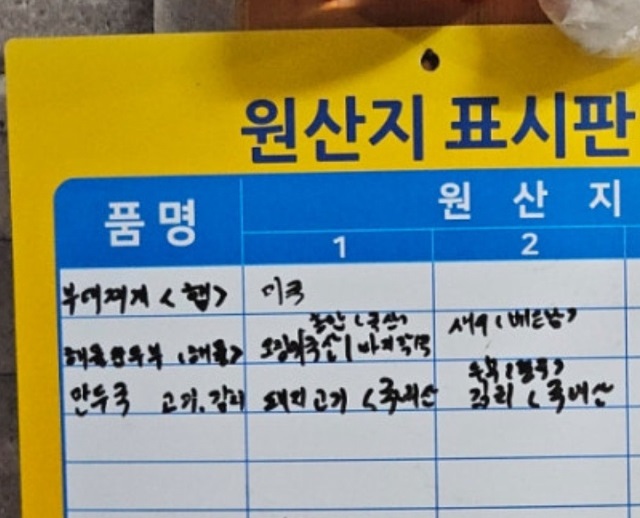 원산지 표시판
품명 원산지
1 2
부대찌개 <햄> 미국
홍합 (국산) 새우 (베트남)
해물순두부 <해물> 오징어국산 바지락
만두국 고기, 김치 돼지고기 <국내산
김치 <국내산